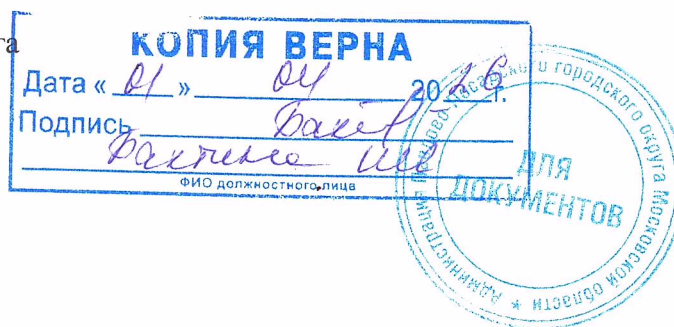 та
КОПИЯ ВЕРНА
Дата « 01 » 04 20 26 г.
Подпись
ФИО должностного лица
Администрация Павлово-Посадского городского округа Московской области *
ДЛЯ
ДОКУМЕНТОВ